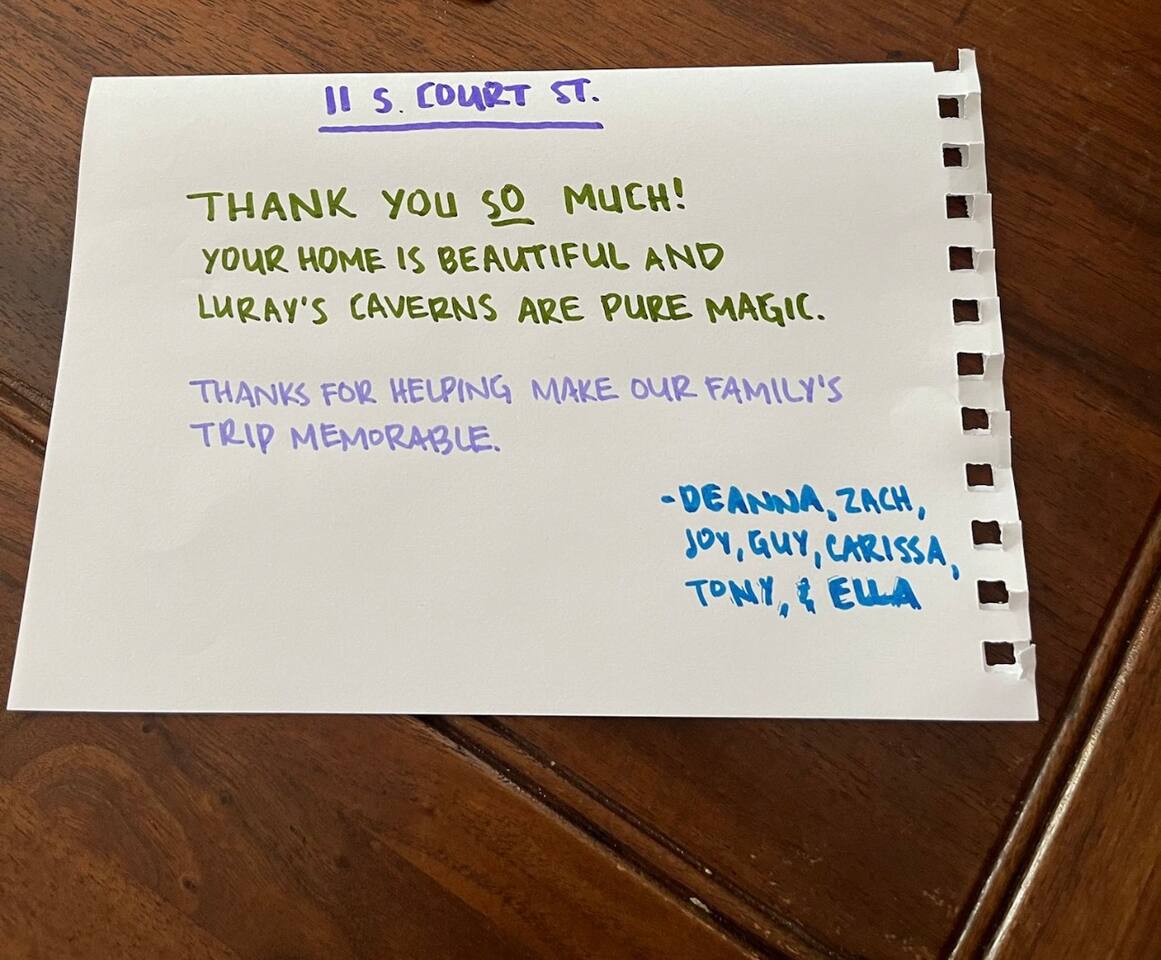 11 S. COURT ST.
THANK YOU SO MUCH!
YOUR HOME IS BEAUTIFUL AND
LURAY'S CAVERNS ARE PURE MAGIC.
THANKS FOR HELPING MAKE OUR FAMILY'S
TRIP MEMORABLE.
-DEANNA, ZACH,
JOY, GUY, CARISSA,
TONY, & ELLA